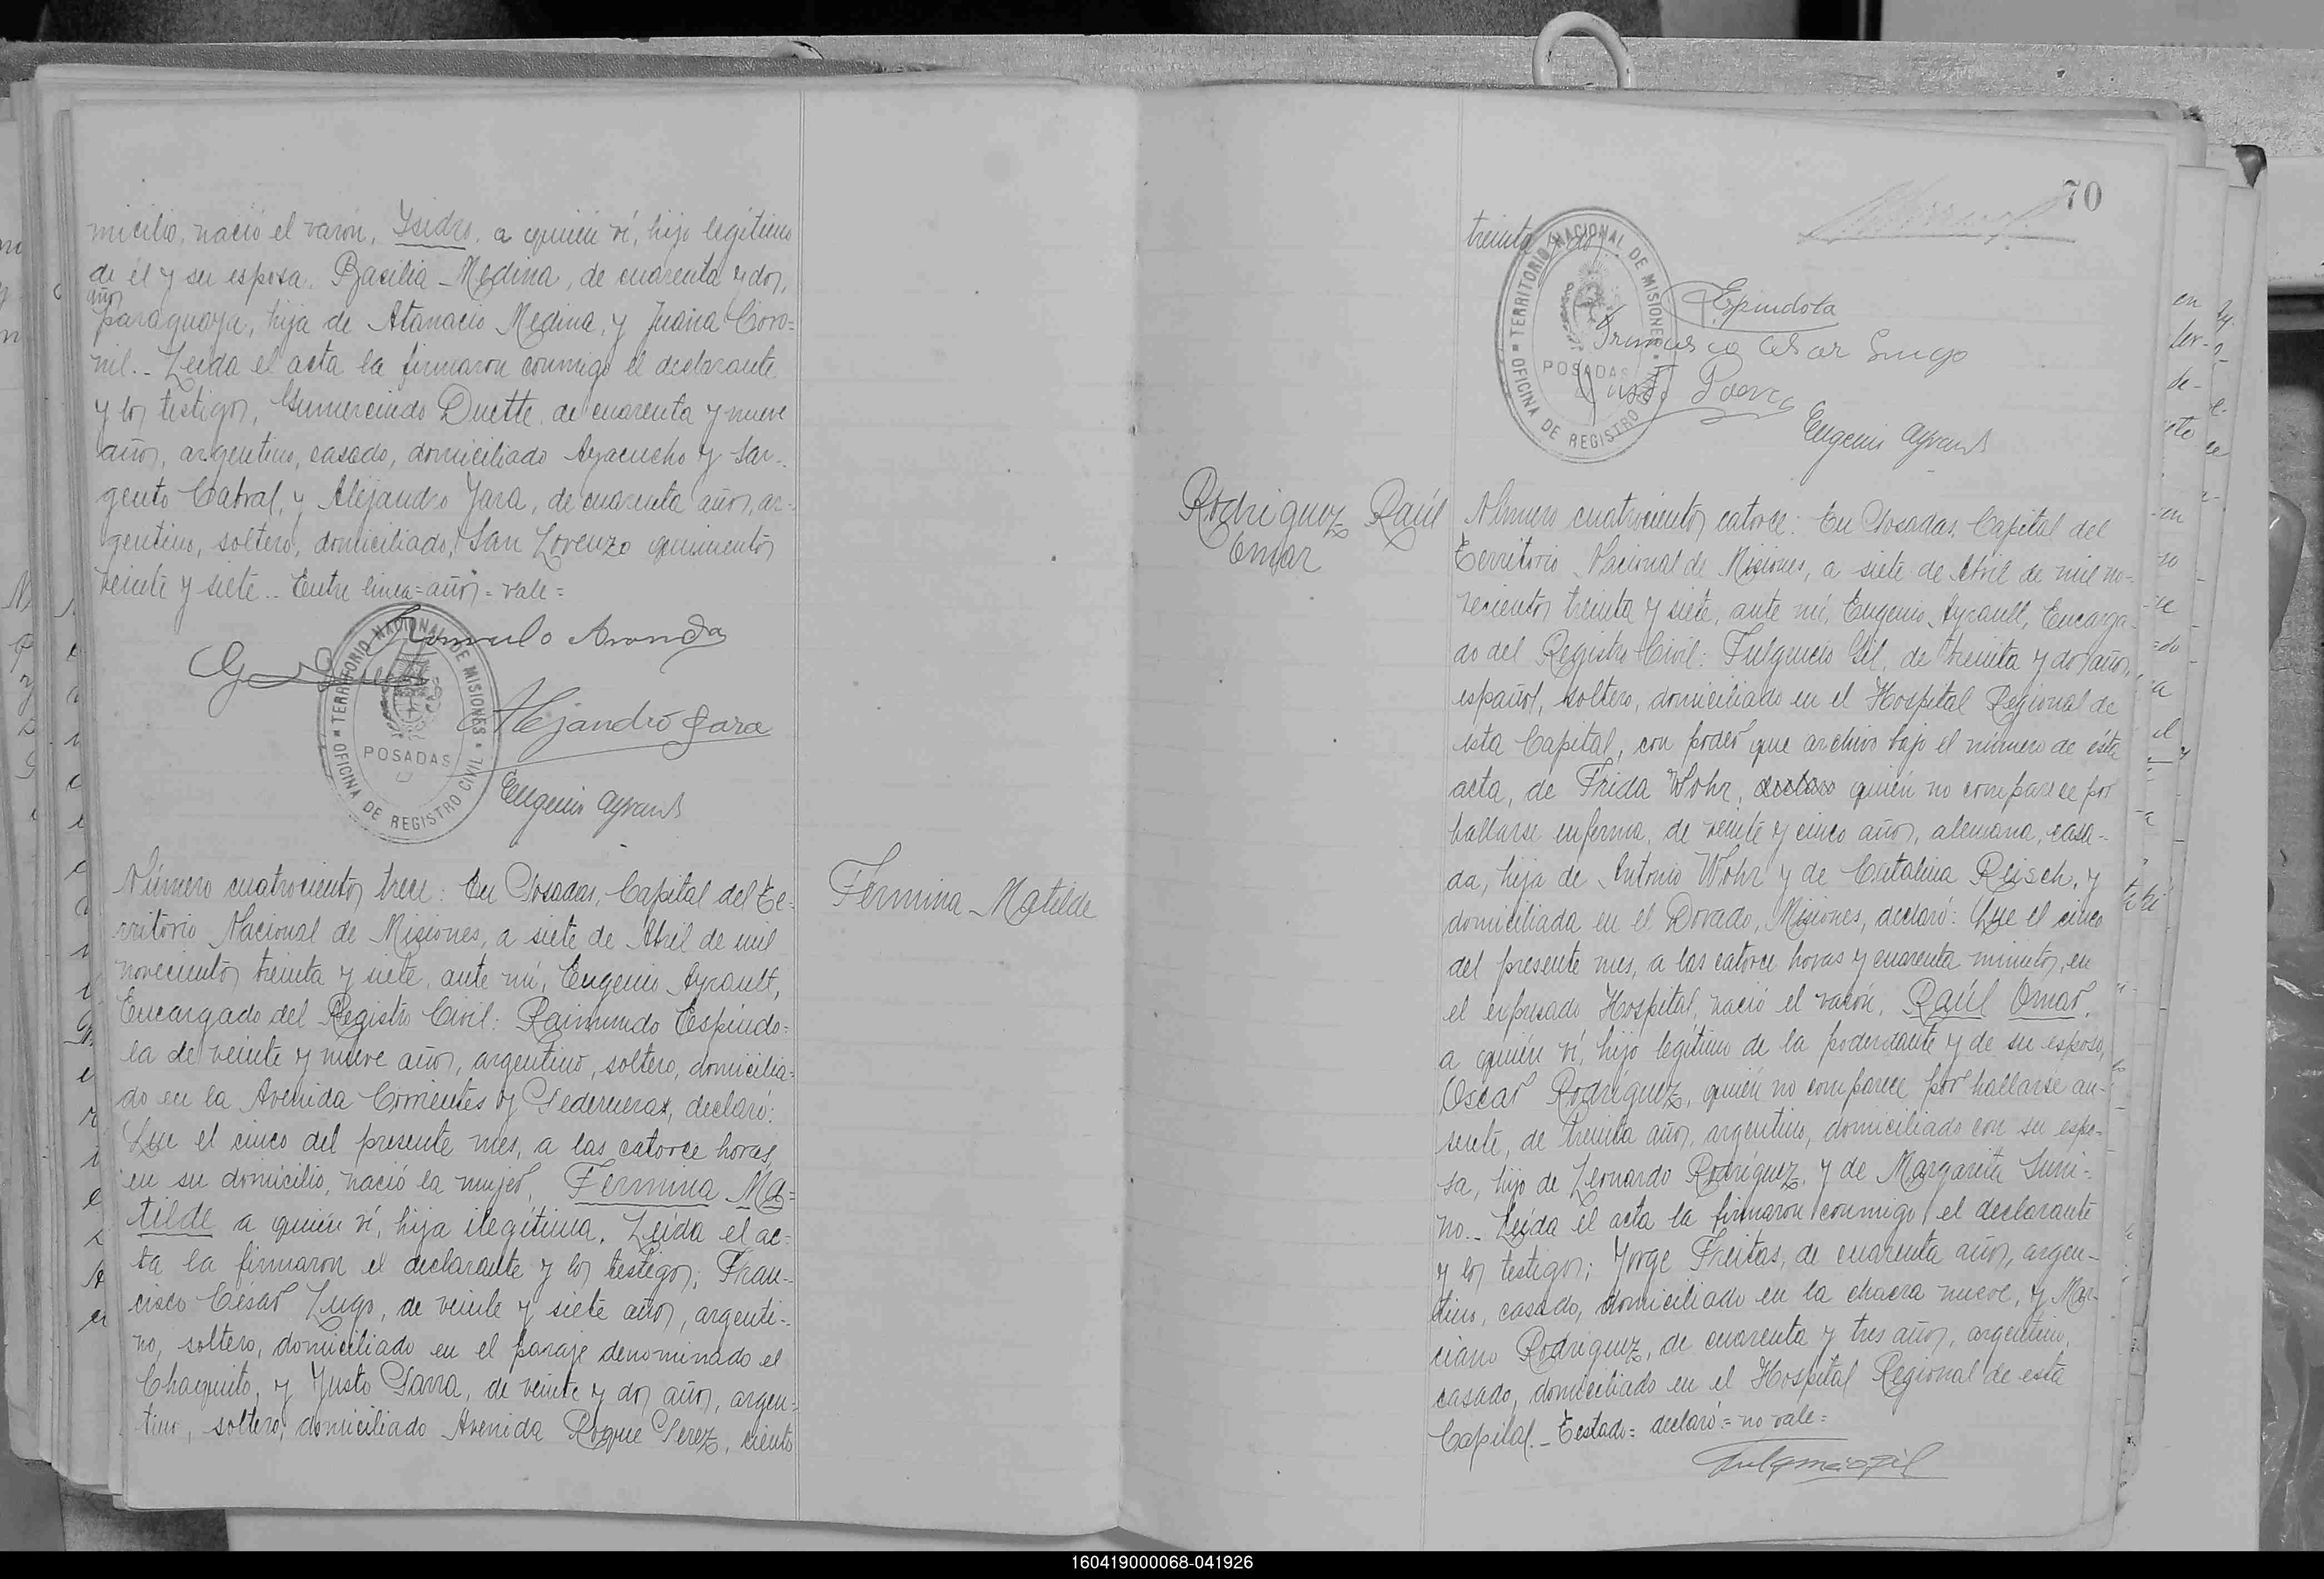 micilio, nació el varón, Ysidro, a quién ví, hijo legítimo
de él y su esposa, Basilia Medina, de cuarenta y dos,
años
paraguaya, hija de Atanacio Medina, y Juana Coro=
nil.- Leída el acta la firmaron conmigo el declarante
y los testigos, Gumercindo Duette, de cuarenta y nueve
años, argentino, casado, domiciliado Ayacucho y Sar-
gento Cabral, y Alejandro Jara, de cuarenta años, ar-
gentino, soltero, domiciliado, San Lorenzo quinientos
veinte y siete.. Entre linea=años=vale=
Romulo Aranda
Alejandro Jara
TERRITORIO NACIONAL DE MISIONES
POSADAS
OFICINA DE REGISTRO CIVIL
Eugenio Ayrault
Número cuatrocientos trece: En Posadas, Capital del Te=
rritorio Nacional de Misiones, a siete de Abril de mil
novecientos treinta y siete, ante mí, Eugenio Ayrault,
Encargado del Registro Civil: Raimundo Espíndo=
la de veinte y nueve años, argentino, soltero, domicilia=
do en la Avenida Corrientes y Pedernera, declaró:
Que el cinco del presente mes, a las catorce horas,
en su domicilio, nació la mujer, Fermina Ma=
tilde a quién ví, hija ilegítima. Leída el ac=
ta la firmaron el declarante y los testigos; Fran-
cisco Cesar Lugo, de veinte y siete años, argenti-
no, soltero, domiciliado en el paraje denominado el
Chaquito, y Justo Parra, de veinte y dos años, argen-
tino, soltero, domiciliado Avenida Roque Perez, ciento
Fermina Matilde
70
treinta y dos
TERRITORIO NACIONAL DE MISIONES
POSADAS
OFICINA DE REGISTRO
Espindola
Francisco Cesar Lugo
Justo
Eugenio Ayrault
Rodriguez Raúl
Omar
Número cuatrocientos catorce: En Posadas, Capital del
Territorio Nacional de Misiones, a siete de Abril de mil no-
vecientos treinta y siete, ante mí, Eugenio Ayrault, Encarga-
do del Registro Civil: Fulgencio Gil, de treinta y dos años,
español, soltero, domiciliado en el Hospital Regional de
esta Capital, con poder que archivo bajo el número de ésta
acta, de Frida Wohr, declaro quién no comparece por
hallarse enferma, de veinte y cinco años, alemana, casa-
da, hija de Antonio Wohr y de Catalina Reisch, y
domiciliada en el Dorado, Misiones, declaró: Que el cinco
del presente mes, a las catorce horas y cuarenta minutos, en
el expresado Hospital, nació el varón, Raúl Omar,
a quién ví, hijo legítimo de la poderdante y de su esposo,
Oscar Rodríguez, quién no comparece por hallarse au-
sente, de treinta años, argentino, domiciliado con su espo-
sa, hijo de Leonardo Rodríguez, y de Margarita Suni-
no.- Leída el acta la firmaron conmigo el declarante
y los testigos; Jorge Freitas, de cuarenta años, argen-
tino, casado, domiciliado en la chacra nueve, y Mar-
ciano Rodriguez, de cuarenta y tres años, argentino,
casado, domiciliado en el Hospital Regional de esta
Capital.- Testado= declaró= no vale=
Fulgencio Gil
160419000068-041926